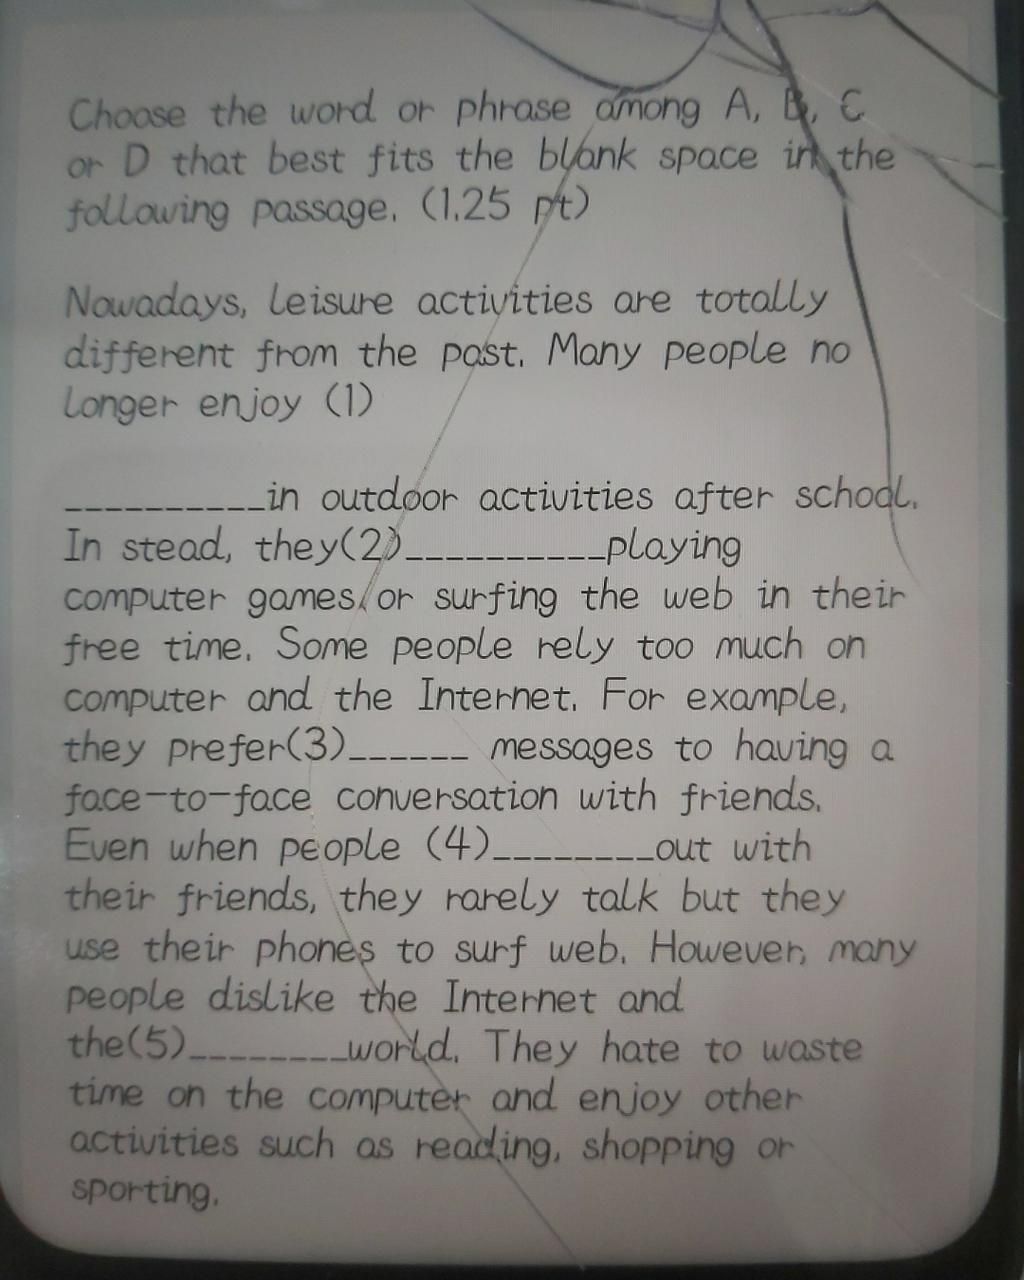 Choose the word or phrase among A, B, C
or D that best fits the blank space in the
following passage. (1.25 pt)
Nowadays, leisure activities are totally
different from the past. Many people no
longer enjoy (1)
__________in outdoor activities after school.
In stead, they(2)__________playing
computer games or surfing the web in their
free time. Some people rely too much on
computer and the Internet. For example,
they prefer(3)______ messages to having a
face-to-face conversation with friends.
Even when people (4)________out with
their friends, they rarely talk but they
use their phones to surf web. However, many
people dislike the Internet and
the(5)________world. They hate to waste
time on the computer and enjoy other
activities such as reading, shopping or
sporting.